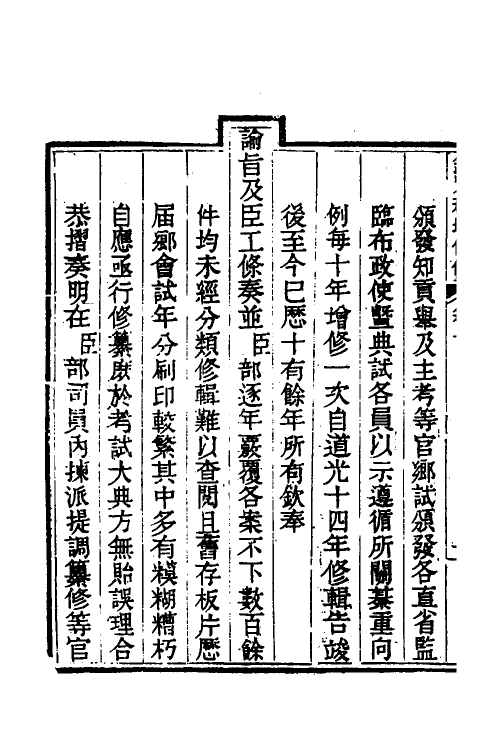 頒發知貢舉及主考等官鄉試頒發各直省監
臨布政使暨典試各員以示遵循所關綦重向
例每十年增修一次自道光十四年修輯告竣
後至今已歷十有餘年所有欽奉
諭旨及臣工條奏並臣部逐年覈覆各案不下數百餘
件均未經分類修輯難以查閱且舊存板片歷
屆鄉會試年分刷印較繁其中多有糢糊糟朽
自應亟行修纂庶於考試大典方無貽誤理合
恭摺奏明在臣部司員內揀派提調纂修等官